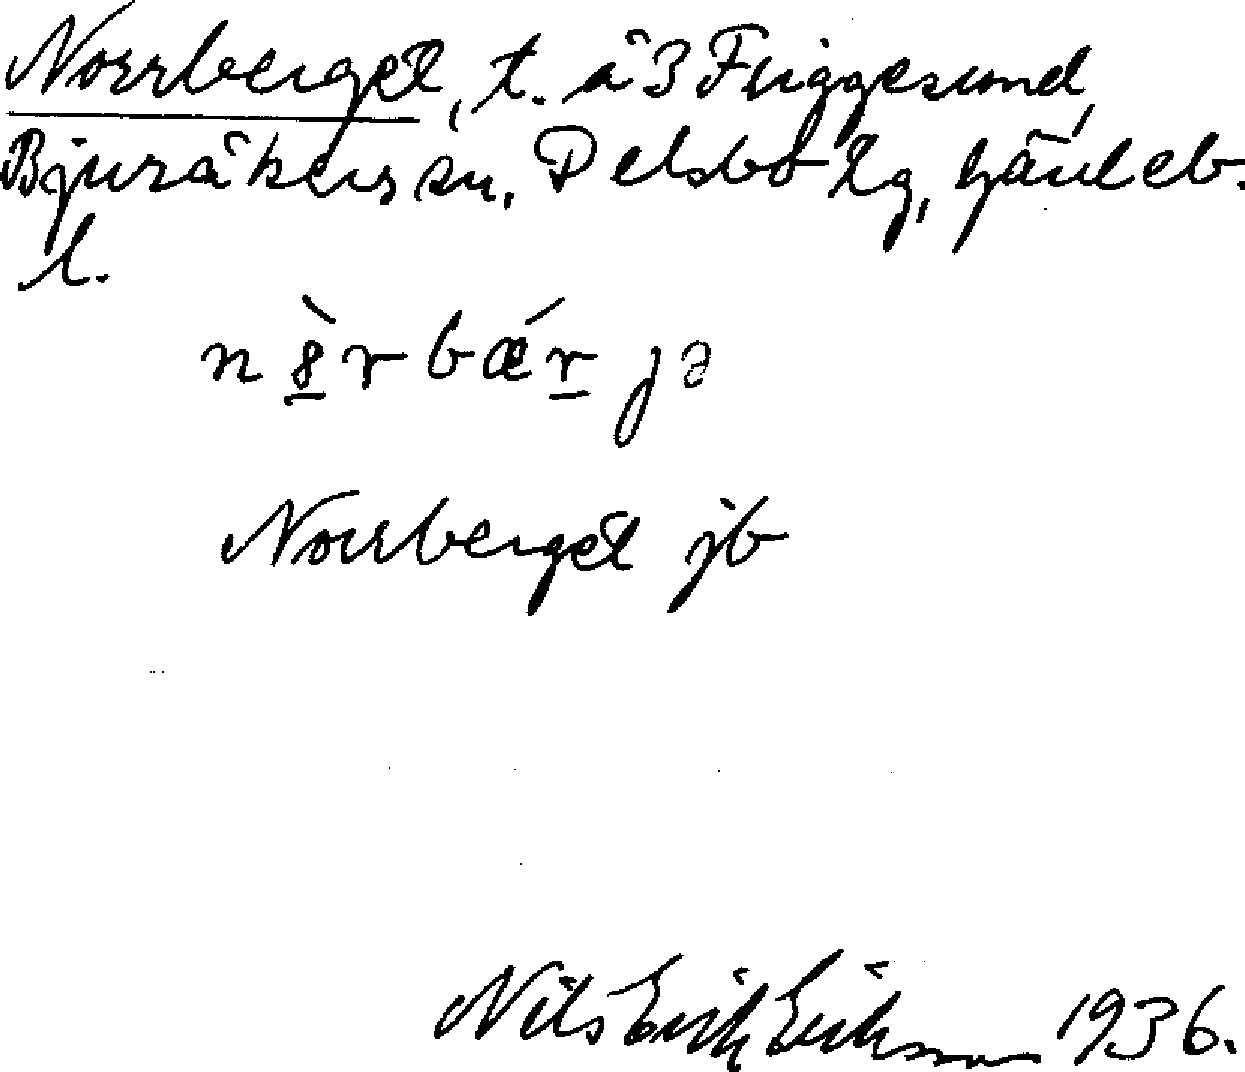 Norrberget, t. å 3 Friggesund,
Bjuråkers sn. Delsbo tg, Gävleb.
l.
Norrberget jb
Nils Erik Eriksson 1936.